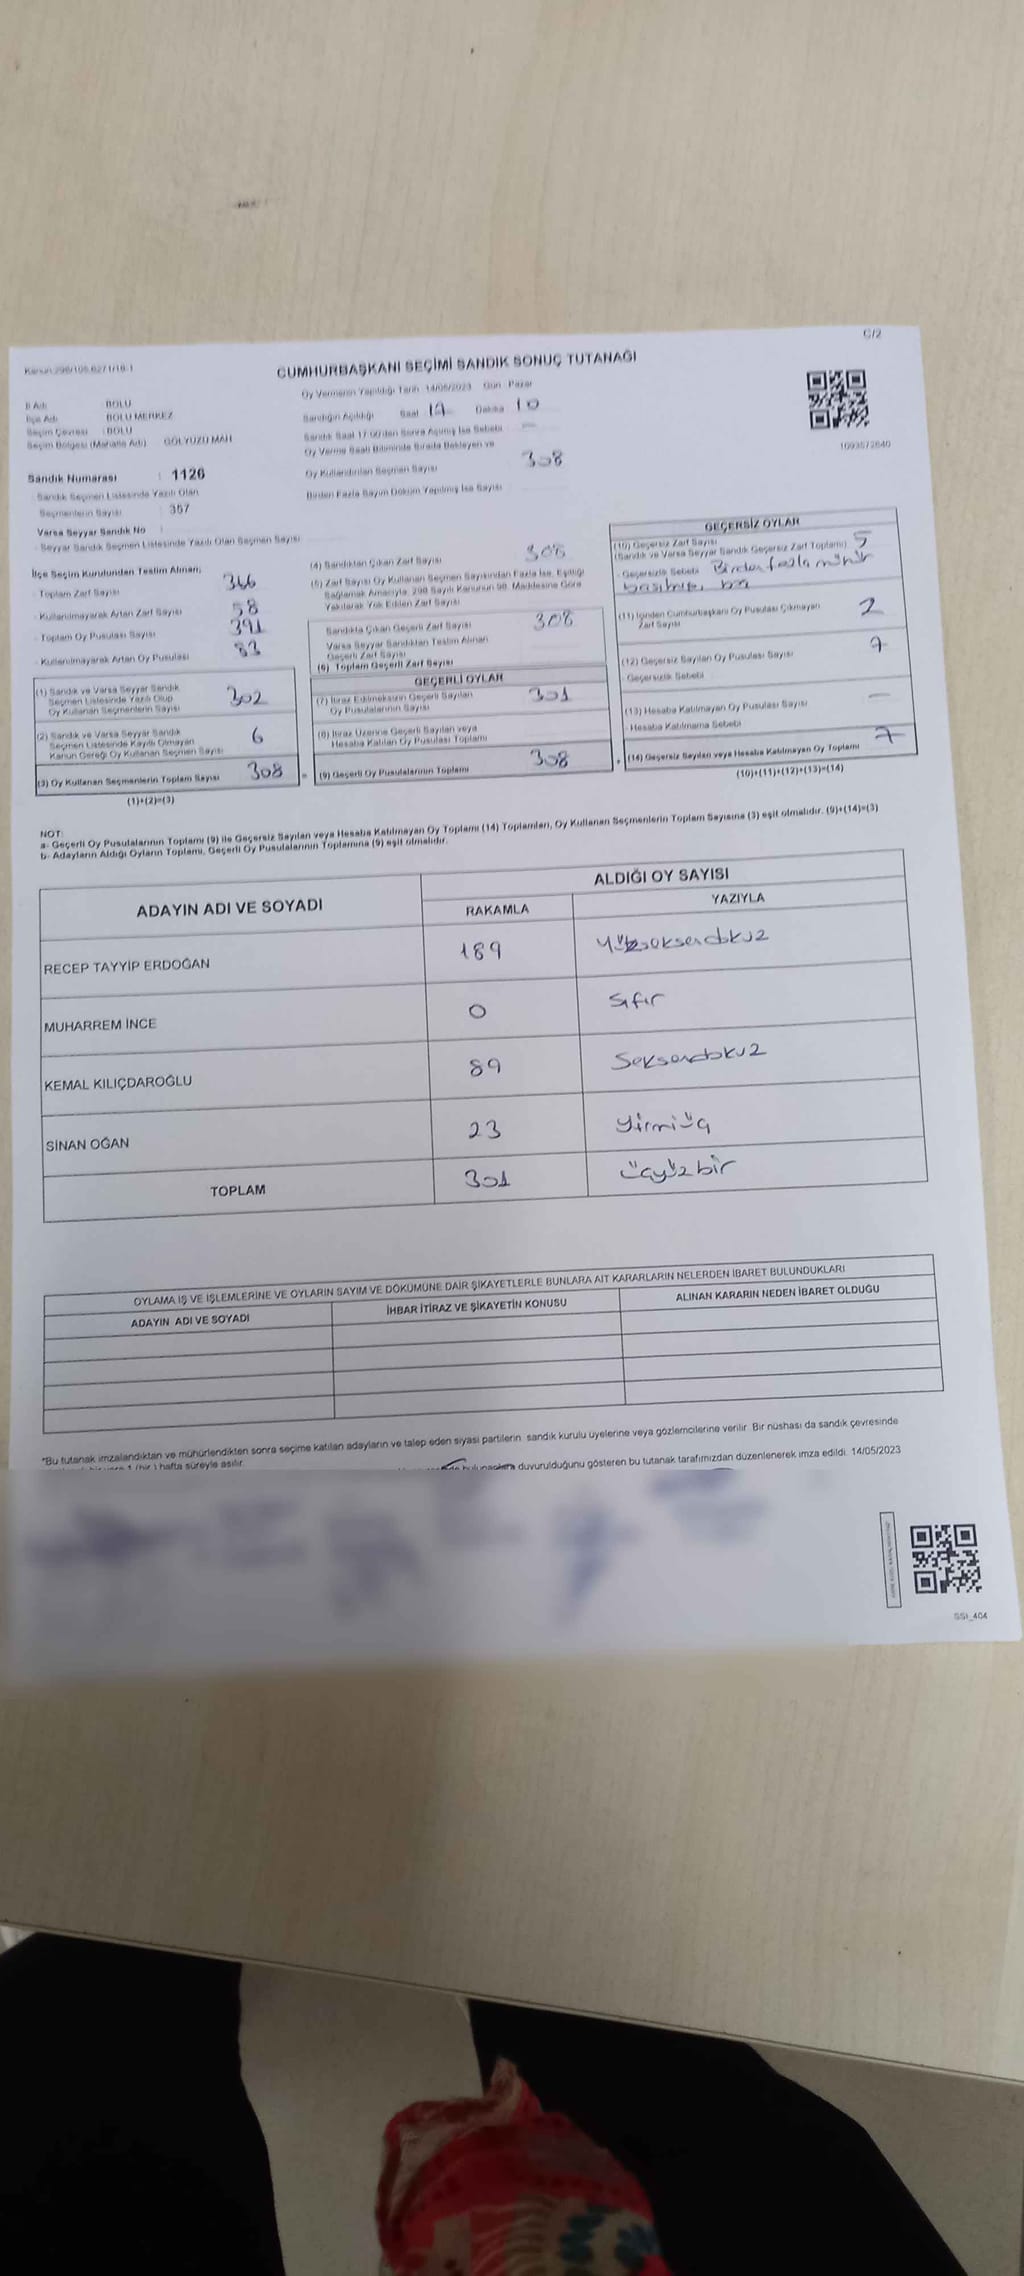 C/2
Kanun:298/105,6271/18-1
CUMHURBAŞKANI SEÇİMİ SANDIK SONUÇ TUTANAĞI
İl Adı : BOLU
İlçe Adı : BOLU MERKEZ
Seçim Çevresi : BOLU
Seçim Bölgesi (Mahalle Adı) GÖLYÜZÜ MAH.
Sandık Numarası : 1126
Sandık Seçmen Listesinde Yazılı Olan
Seçmenlerin Sayısı : 367
Varsa Seyyar Sandık No :
- Seyyar Sandık Seçmen Listesinde Yazılı Olan Seçmen Sayısı
Oy Vermenin Yapıldığı Tarih 14/05/2023 Gün Pazar
Sandığın Açıldığı Saat 17 Dakika 10
Sandık Saat 17:00'den Sonra Açılmış İse Sebebi —
Oy Verme Saati Bitiminde Sırada Bekleyen ve
Oy Kullandırılan Seçmen Sayısı 308
Birden Fazla Sayım Döküm Yapılmış İse Sayısı
1093572640
İlçe Seçim Kurulundan Teslim Alınan;
- Toplam Zarf Sayısı 366
- Kullanılmayarak Artan Zarf Sayısı 58
- Toplam Oy Pusulası Sayısı 391
- Kullanılmayarak Artan Oy Pusulası 83
(1) Sandık ve Varsa Seyyar Sandık
Seçmen Listesinde Yazılı Olup
Oy Kullanan Seçmenlerin Sayısı 302
(2) Sandık ve Varsa Seyyar Sandık
Seçmen Listesinde Kayıtlı Olmayan
Kanun Gereği Oy Kullanan Seçmen Sayısı 6
(3) Oy Kullanan Seçmenlerin Toplam Sayısı 308
(1)+(2)=(3)
(4) Sandıktan Çıkan Zarf Sayısı 308
(5) Zarf Sayısı Oy Kullanan Seçmen Sayısından Fazla İse, Eşitliği
Sağlamak Amacıyla, 298 Sayılı Kanunun 98. Maddesine Göre
Yakılarak Yok Edilen Zarf Sayısı
Sandıkta Çıkan Geçerli Zarf Sayısı 308
Varsa Seyyar Sandıktan Teslim Alınan
Geçerli Zarf Sayısı
(6) Toplam Geçerli Zarf Sayısı
GEÇERLİ OYLAR
(7) İtiraz Edilmeksizin Geçerli Sayılan
Oy Pusulalarının Sayısı 301
(8) İtiraz Üzerine Geçerli Sayılan veya
Hesaba Katılan Oy Pusulası Toplamı
= (9) Geçerli Oy Pusulalarının Toplamı 308
GEÇERSİZ OYLAR
(10) Geçersiz Zarf Sayısı
(Sandık ve Varsa Seyyar Sandık Geçersiz Zarf Toplamı) 5
- Geçersizlik Sebebi Birden fazla mühür
basılmış,
(11) İçinden Cumhurbaşkanı Oy Pusulası Çıkmayan
Zarf Sayısı 2
(12) Geçersiz Sayılan Oy Pusulası Sayısı 7
- Geçersizlik Sebebi
(13) Hesaba Katılmayan Oy Pusulası Sayısı —
- Hesaba Katılmama Sebebi
+ (14) Geçersiz Sayılan veya Hesaba Katılmayan Oy Toplamı 7
(10)+(11)+(12)+(13)=(14)
NOT:
a- Geçerli Oy Pusulalarının Toplamı (9) ile Geçersiz Sayılan veya Hesaba Katılmayan Oy Toplamı (14) Toplamları, Oy Kullanan Seçmenlerin Toplam Sayısına (3) eşit olmalıdır. (9)+(14)=(3)
b- Adayların Aldığı Oyların Toplamı, Geçerli Oy Pusulalarının Toplamına (9) eşit olmalıdır.
ADAYIN ADI VE SOYADI ALDIĞI OY SAYISI
RAKAMLA YAZIYLA
RECEP TAYYİP ERDOĞAN 189 Yüzseksendokuz
MUHARREM İNCE 0 Sıfır
KEMAL KILIÇDAROĞLU 89 Seksendokuz
SİNAN OĞAN 23 Yirmiüç
TOPLAM 301 Üçyüzbir
OYLAMA İŞ VE İŞLEMLERİNE VE OYLARIN SAYIM VE DÖKÜMÜNE DAİR ŞİKAYETLERLE BUNLARA AİT KARARLARIN NELERDEN İBARET BULUNDUKLARI
ADAYIN ADI VE SOYADI İHBAR İTİRAZ VE ŞİKAYETİN KONUSU ALINAN KARARIN NEDEN İBARET OLDUĞU
*Bu tutanak imzalandıktan ve mühürlendikten sonra seçime katılan adayların ve talep eden siyasi partilerin sandık kurulu üyelerine veya gözlemcilerine verilir. Bir nüshası da sandık çevresinde
hafta süreyle asılır.
duyurulduğunu gösteren bu tutanak tarafımızdan düzenlenerek imza edildi. 14/05/2023
SSI_404